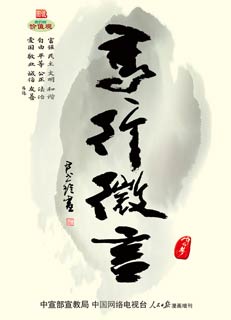 价值观
富强 民主 文明 和谐
自由 平等 公正 法治
爱国 敬业 诚信 友善
高行微言
中宣部宣教局 中国网络电视台 人民日报漫画增刊